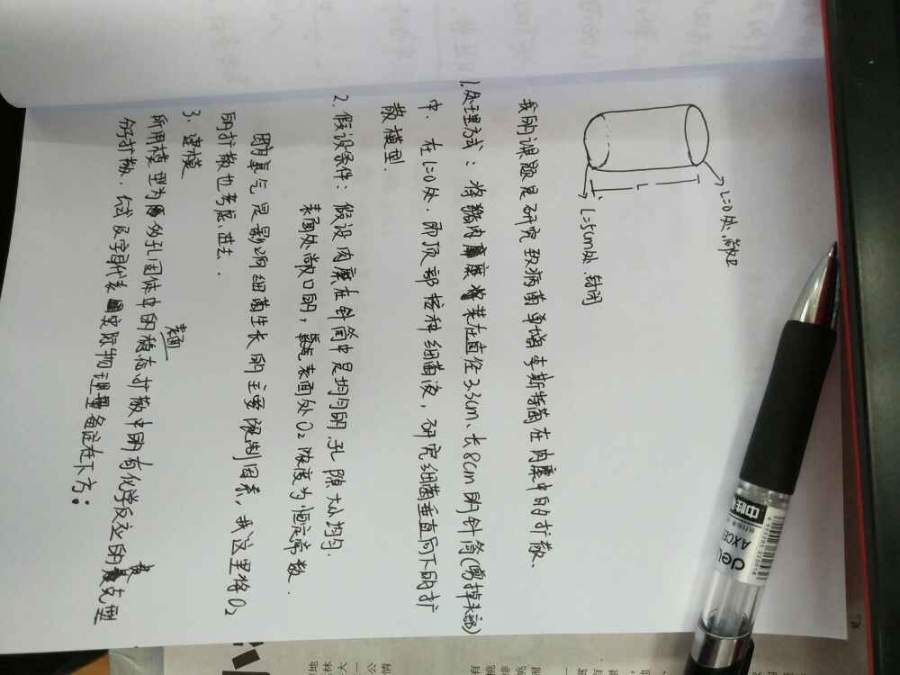 L=0处,敞口
L
L=5cm处.封闭
我的课题是研究致病菌单增李斯特菌在肉糜中的扩散.
1.处理方式:将猪肉糜装在直径2.3cm、长8cm的针筒(剪掉头部)
中.在L=0处.即顶部接种细菌液,研究细菌垂直向下的扩
散模型.
2.假设条件:假设肉糜在针筒中是均匀的.孔隙大小均匀.
表面处敞口的,表面处O2浓度为恒定常数.
因氧气是影响细菌生长的主要限制因素,我这里将O2
的扩散也考虑进去.
3.建模
所用模型为多孔固体中的稳态扩散中的有化学反应的表面克
分子扩散.公式及字母代表实际物理量备注在下方:
中
AXCE
deli